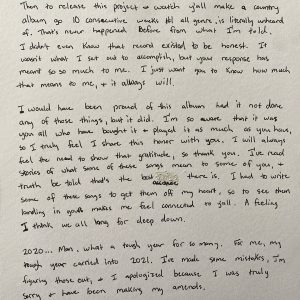 Then to release this project & watch y'all make a country
album go 10 consecutive weeks #1 all genre, is literally unheard
of. That's never happened before from what I'm told.
I didn't even know that record existed to be honest. It
wasn't what I set out to accomplish, but your response has
meant so so much to me. I just want you to know how much
that means to me, & it always will.
I would have been proud of this album had it not done
any of those things, but it did. I'm so aware that it was
you all who have bought it & played it as much as you have,
so I truly feel I share this honor with you. I will always
feel the need to show that gratitude, so thank you. I've read
stories of what some of these songs mean to some of you, &
truth be told that's the best there is. I had to write
some of these songs to get them off my heart, so to see them
landing in yours makes me feel connected to y'all. A feeling
I think we all long for deep down.
2020... Man, what a tough year for so many. For me, my
tough year carried into 2021. I've made some mistakes, I'm
figuring those out, & I apologized because I was truly
sorry & have been making my amends.